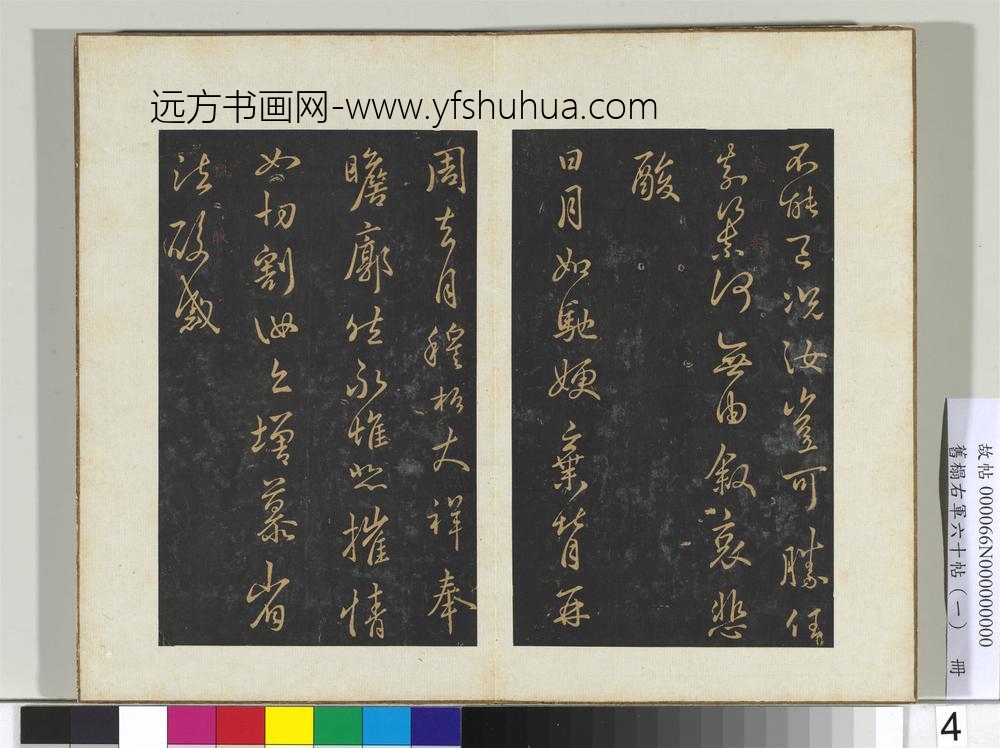 远方书画网-www.yfshuhua.com
不能已况汝豈可勝任
奈何奈何無由叙哀悲
酸
日月如馳嫂棄背再
周去月穆松大祥奉
瞻廓然永惟悲摧情
如切割汝亦增慕省
疏酸感
故帖 000066N000000000
舊榻右軍六十帖（一） 冊
4